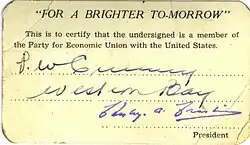 "FOR A BRIGHTER TO-MORROW"
This is to certify that the undersigned is a member of
the Party for Economic Union with the United States.
Western Bay
President